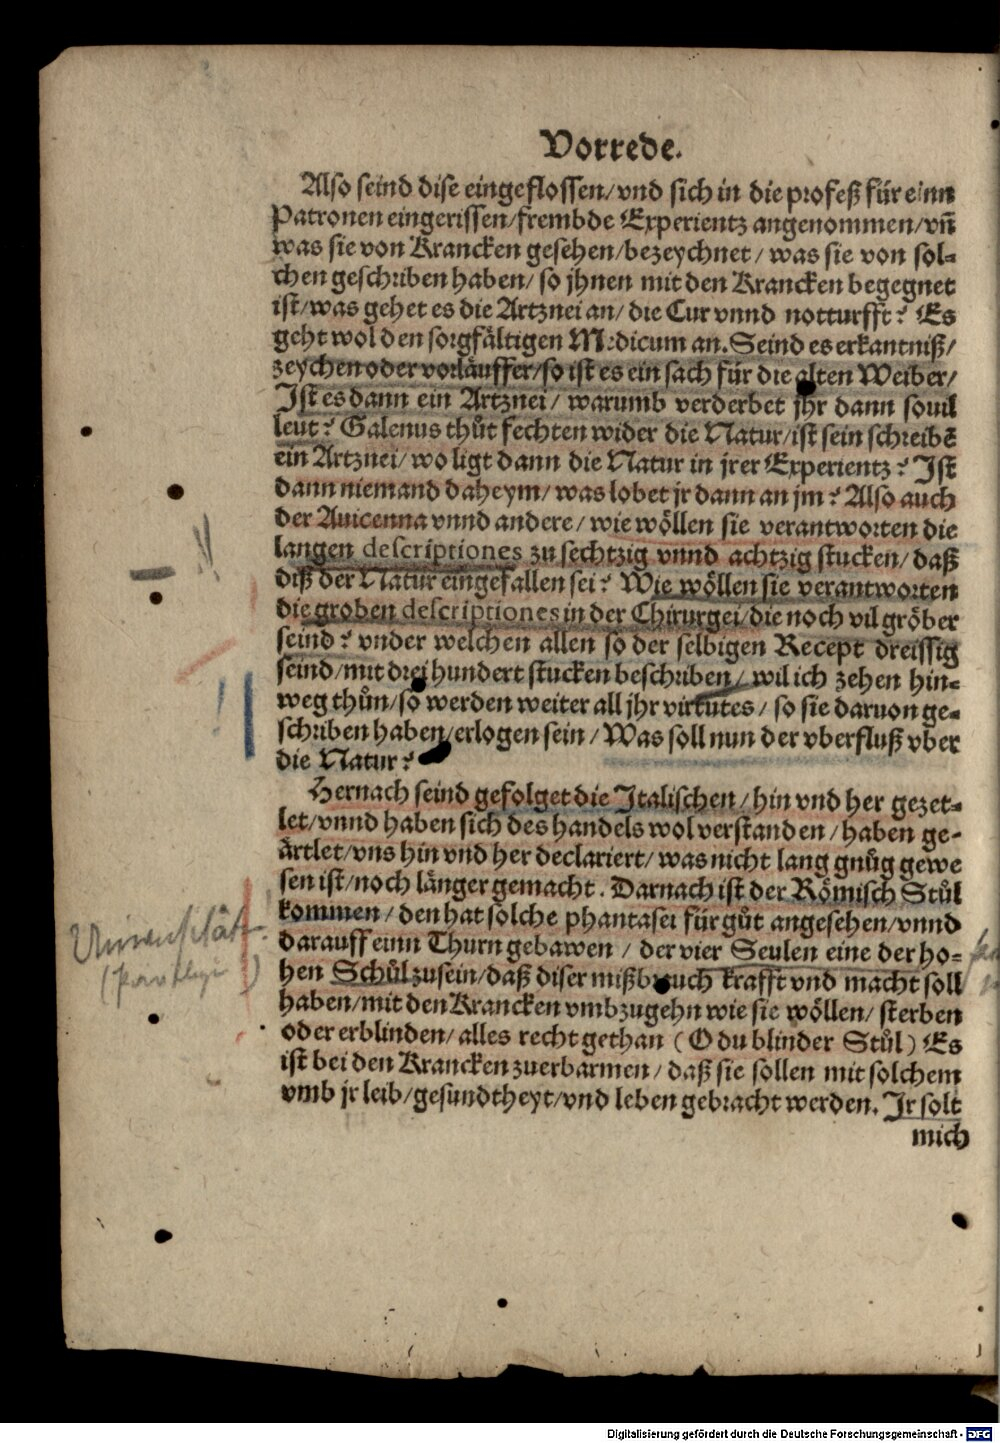 Vorrede.
Also seind dise eingeflossen/vnd sich in die profeß für einn
Patronen eingerissen/frembde Experientz angenommen/vñ
was sie von Krancken gesehen/bezeychnet / was sie von sol-
chen geschriben haben/ so jhnen mit den Krancken begegnet
ist/was gehet es die Artznei an/ die Cur vnnd notturfft? Es
geht wol den sorgfältigen Medicum an. Seind es erkantniß/
zeychen oder vorläuffer/so ist es ein sach für die alten Weiber/
Ist es dann ein Artznei / warumb verderbet jhr dann souil
leut? Galenus thůt fechten wider die Natur/ist sein schreibẽ
ein Artznei/ wo ligt dann die Natur in jrer Experientz? Ist
dann niemand daheym/ was lobet jr dann an jm? Also auch
der Auicenna vnnd andere / wie wöllen sie verantworten die
langen descriptiones zu sechtzig vnnd achtzig stucken/ daß
diß der Natur eingefallen sei? Wie wöllen sie verantworten
die groben descriptiones in der Chirurgei/die noch vil gröber
seind? vnder welchen allen so der selbigen Recept dreissig
seind/mit drei hundert stucken beschriben/ wil ich zehen hin-
weg thůn/so werden weiter all jhr virtutes / so sie daruon ge-
schriben haben/erlogen sein / Was soll nun der vberfluß vber
die Natur?
Hernach seind gefolget die Italischen / hin vnd her gezet-
let/vnnd haben sich des handels wol verstanden / haben ge-
ärtlet/vns hin vnd her declariert/ was nicht lang gnůg gewe
sen ist/noch länger gemacht. Darnach ist der Römisch Stůl
kommen / den hat solche phantasei für gůt angesehen/vnnd
darauff einn Thurn gebawen / der vier Seulen eine der ho-
Universität
hen Schůl zusein/daß diser mißbrauch krafft vnd macht soll
haben/mit den Krancken vmbzugehn wie sie wöllen/ sterben
oder erblinden/ alles recht gethan (O du blinder Stůl) Es
ist bei den Krancken zuerbarmen / daß sie sollen mit solchem
vmb jr leib/gesundtheyt/vnd leben gebracht werden. Jr solt
mich
Digitalisierung gefördert durch die Deutsche Forschungsgemeinschaft - DFG